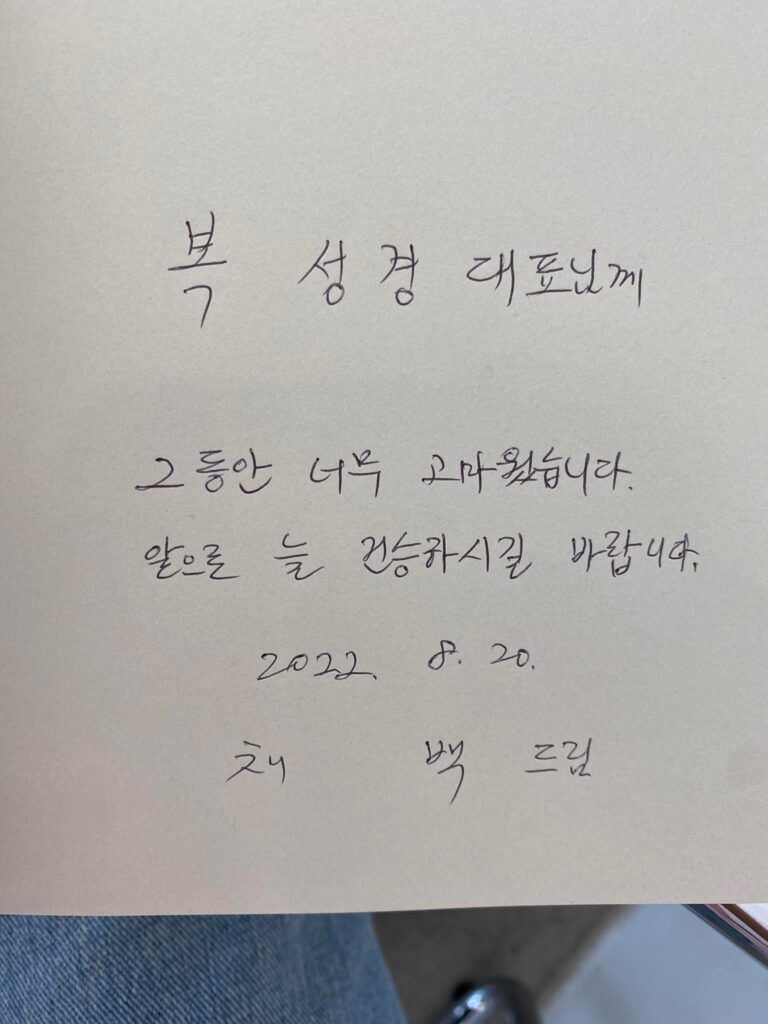 복 성경 대표님께
그동안 너무 고마웠습니다.
앞으로 늘 건승하시길 바랍니다.
2022. 8. 20.
채 백 드림